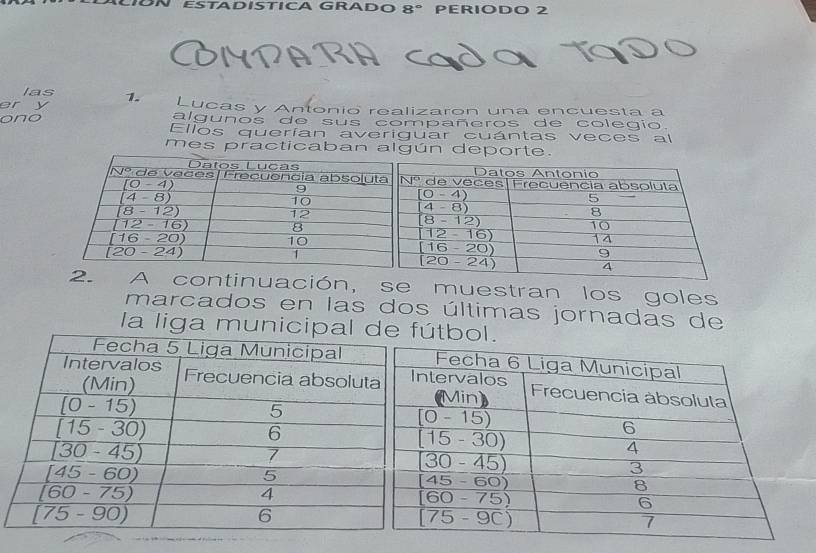 ESTADISTICA GRADO 8° PERIODO 2
COMPARA cada TaDO
las
er y
ono
1. Lucas y Antonio realizaron una encuesta a
algunos de sus compañeros de colegio.
Ellos querían averiguar cuántas veces al
mes practicaban algún deporte.
Datos Lucas
Nº de veces Frecuencia absoluta
[0 - 4) 9
[4 - 8) 10
[8 - 12) 12
[12 - 16) 8
[16 - 20) 10
[20 - 24) 1
Datos Antonio
Nº de veces Frecuencia absoluta
[0 - 4) 5
[4 - 8) 8
[8 - 12) 10
[12 - 16) 14
[16 - 20) 9
[20 - 24) 4
2. A continuación, se muestran los goles
marcados en las dos últimas jornadas de
la liga municipal de fútbol.
Fecha 5 Liga Municipal
Intervalos (Min) Frecuencia absoluta
[0 - 15) 5
[15 - 30) 6
[30 - 45) 7
[45 - 60) 5
[60 - 75) 4
[75 - 90) 6
Fecha 6 Liga Municipal
Intervalos (Min) Frecuencia absoluta
[0 - 15) 6
[15 - 30) 4
[30 - 45) 3
[45 - 60) 8
[60 - 75) 6
[75 - 90) 7